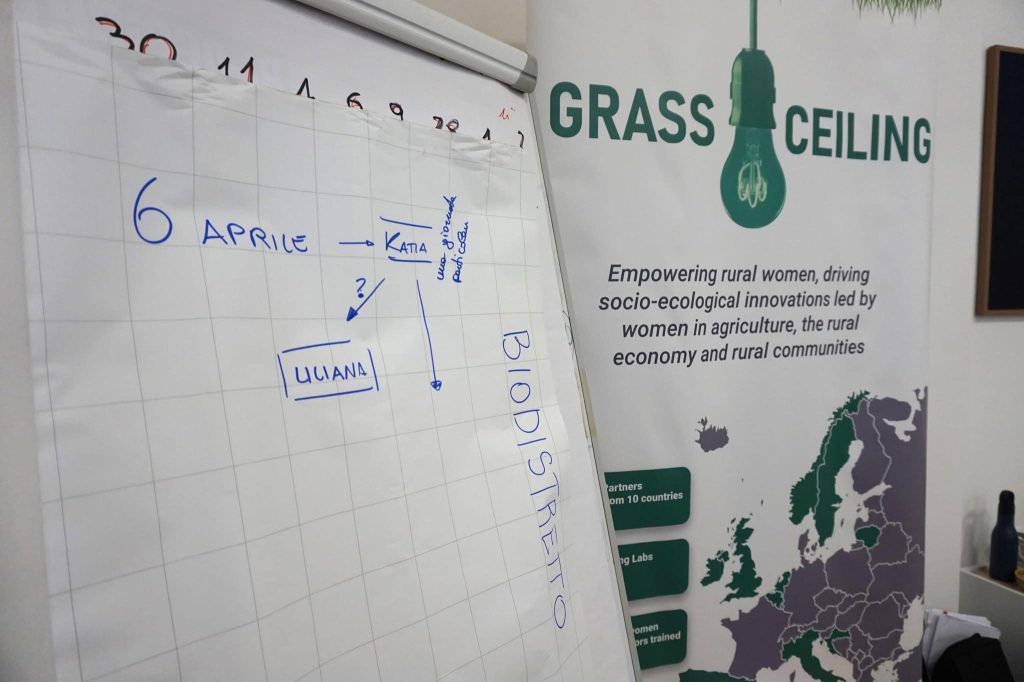 30 11 1 6 9
6 APRILE → KATIA
una giornata
particolare
?
LILIANA
BIODISTRETTO
GRASS CEILING
Empowering rural women, driving
socio-ecological innovations led by
women in agriculture, the rural
economy and rural communities
artners
om 10 countries
ng Labs
omen
ors trained